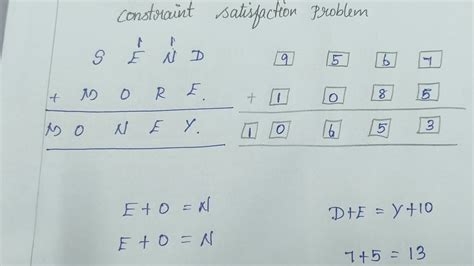 Constraint Satisfaction Problem
1 1
S E N D 9 5 6 7
+ M O R E. + 1 0 8 5
M O N E Y. 1 0 6 5 3
E + O = N D+E = Y+10
E + O = N 7+5 = 13